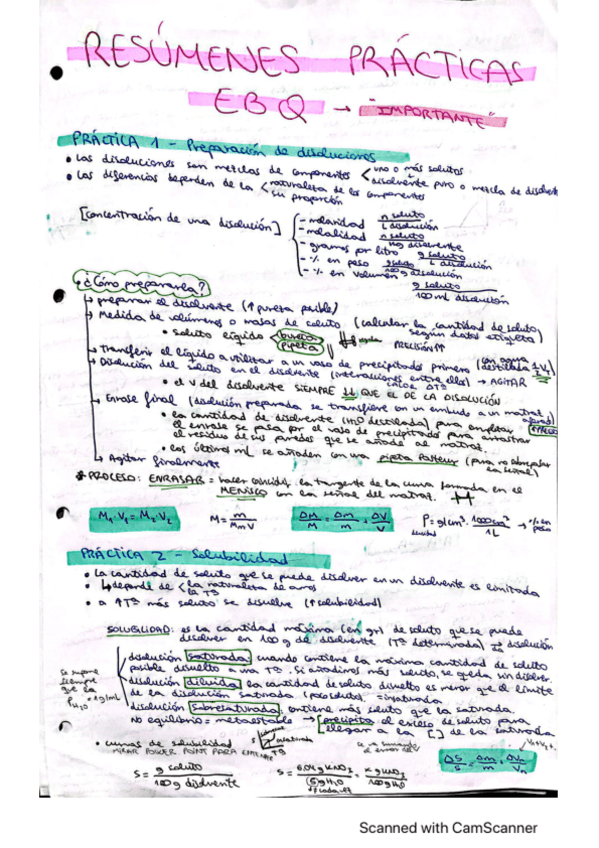 RESÚMENES PRÁCTICAS
EBQ → "IMPORTANTE"
PRÁCTICA 1 - Preparación de disoluciones
• Las disoluciones son mezclas de componentes < uno o más solutos
disolvente puro o mezcla de disolvent
• Las diferencias dependen de la < naturaleza de los componentes
su proporción
[Concentración de una disolución]
- molaridad n soluto / L disolución
- molalidad n soluto / Kg disolvente
- gramos por litro g soluto / L disolución
- % en peso g soluto / 100 g disolución
- % en volumen g soluto / 100 mL disolución
¿Cómo prepararla?
→ preparar el disolvente (↑ pureza posible)
→ Medida de volúmenes o masas de soluto (calcular la cantidad de soluto según datos etiqueta)
• soluto líquido < bureta
pipeta
PRECISIÓN ↑↑
→ Transferir el líquido a utilizar a un vaso de precipitado primero (con agua destilada
→ Disolución del soluto en el disolvente (interacciones entre ellos) → AGITAR
• el V del disolvente SIEMPRE ↓↓ QUE EL DE LA DISOLUCIÓN
→ Enrase final (disolución preparada se transfiere con un embudo a un matraz aforad)
• la cantidad de disolvente (H2O destilada) para completar
el enrase se pasa por el vaso de precipitados para arrastrar
el residuo de sus paredes que se añade al matraz.
• los últimos mL se añaden con una pipeta Pasteur (para no sobrepasar la señal)
→ Agitar finalmente
* PROCESO: ENRASAR = hacer coincidir la tangente de la curva formada en el
MENISCO con la señal del matraz.
M1·V1 = M2·V2
M = m / Mm V
ΔM/M = Δm/m + ΔV/V
ρ = g/cm³ · 1000 cm³ / 1L → % en peso
densidad
PRÁCTICA 2 - Solubilidad
• La cantidad de soluto que se puede disolver en un disolvente es limitada
↳ depende de < la naturaleza de ambos
la Tª
• a ↑Tª más soluto se disuelve (↑ solubilidad)
SOLUBILIDAD: es la cantidad máxima (en gr) de soluto que se puede
disolver en 100 g de disolvente (Tª determinada) → disolución
disolución saturada cuando contiene la máxima cantidad de soluto
posible disuelto a una Tª. Si añadimos más soluto, se queda sin disolver.
disolución diluida la cantidad de soluto disuelto es menor que el límite
de la disolución saturada (poco soluto) = insaturada
disolución sobresaturada: contiene más soluto que la saturada.
No equilibrio = metaestable → precipita el exceso de soluto para
llegar a la [ ] de la saturada
Se supone siempre que la ρ H2O = 1g/mL
• curvas de solubilidad
MIRAR POWER POINT PARA
S = g soluto / 100 g disolvente
S = KNO3 / H2O = x g KNO3 / 100 g H2O
ΔS/S = Δm/m +
Scanned with CamScanner